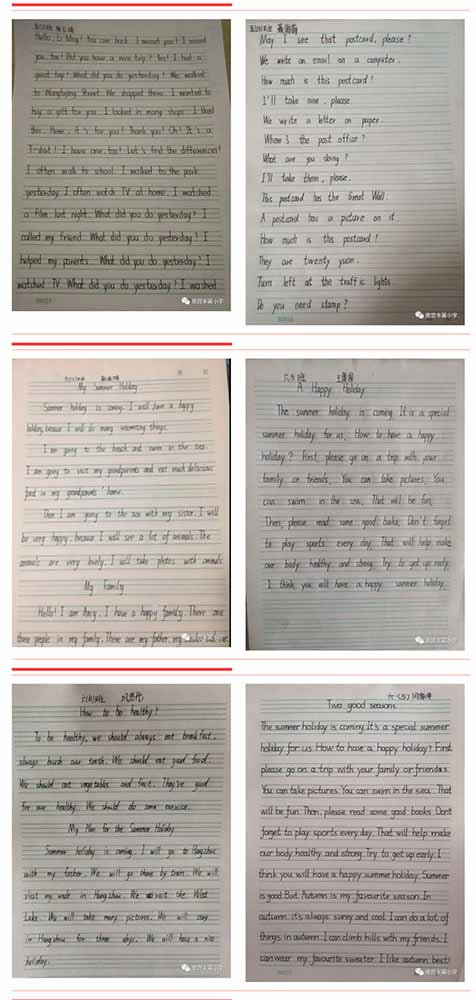 Hello, Li Ming! You are back. I missed you! I missed
you, too! Did you have a nice trip? Yes! I had a
great trip! What did you do yesterday? We walked
to Wangfujing Street. We shopped there. I wanted to
buy a gift for you. I looked in many shops. I liked
this. Here, it's for you! Thank you! Oh! It's a
T-shirt! I have one, too! Let's find the differences!
I often walk to school. I walked to the park
yesterday. I often watch TV at home. I watched
a film last night. What did you do yesterday? I
called my friend. What did you do yesterday? I
helped my parents. What did you do yesterday? I
watched TV. What did you do yesterday? I washed
May I see that postcard, please?
We write an email on a computer.
How much is this postcard?
I'll take nine, please.
We write a letter on paper.
Where's the post office?
What are you doing?
I'll take them, please.
This postcard has the Great Wall.
A postcard has a picture on it.
How much is this postcard?
They are twenty yuan.
Turn left at the traffic lights
Do you need stamp?
My Summer Holiday
Summer holiday is coming. I will have a happy
holiday, because I will do many interesting things.
I am going to the beach and swim in the sea.
I am going to visit my grandparents and eat much delicious
food in my grandparents' home.
Then I am going to the zoo with my sister. I will
be very happy, because I will see a lot of animals. The
animals are very lovely. I will take photos with animals
My Family
Hello! I am Amy. I have a happy family. There are
three people in my family. These are my father, my
六 班
A Happy Holiday
The summer holiday is coming. It is a special
summer holiday for us. How to have a happy
holiday? First, please go on a trip with your
family or friends. You can take pictures. You
can swim in the sea. That will be fun.
Then, please read some good books. Don't forget
to play sports every day. That will help make
our body healthy and strong. Try to get up early.
I think you will have a happy summer holiday.
How to be healthy?
To be healthy, we should always eat breakfast,
always brush our teeth. We should eat good food.
We should eat vegetables and fruit. They're good
for our healthy. We should do some exercise.
My Plan for the Summer Holiday
Summer holiday is coming. I will go to Hangzhou
with my father. We will go there by train. We will
visit my uncle in Hangzhou. We visit the West
Lake. We will take many pictures. We will stay
in Hangzhou for three days. We will have a nice
holiday.
六(5)
Two good seasons
The summer holiday is coming. It's a special summer
holiday for us. How to have a happy holiday? First,
please go on a trip with your family or friends.
You can take pictures. You can swim in the sea. That
will be fun. Then, please read some good books. Don't
forget to play sports every day. That will help make
our body healthy and strong. Try to get up early. I
think you will have a happy summer holiday. Summer
is good. But Autumn is my favourite season. In
autumn, it's always sunny and cool. I can do a lot of
things in autumn. I can climb hills with my friends. I
can wear my favourite sweater. I like autumn best!